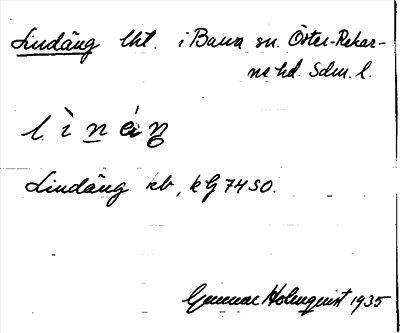 Lindäng lht. i Barva sn. Öster-Rekar-
ne hd. Sdm. l.
Lindäng kb, kG 74 SO.
Gunnar Holmquist 1935